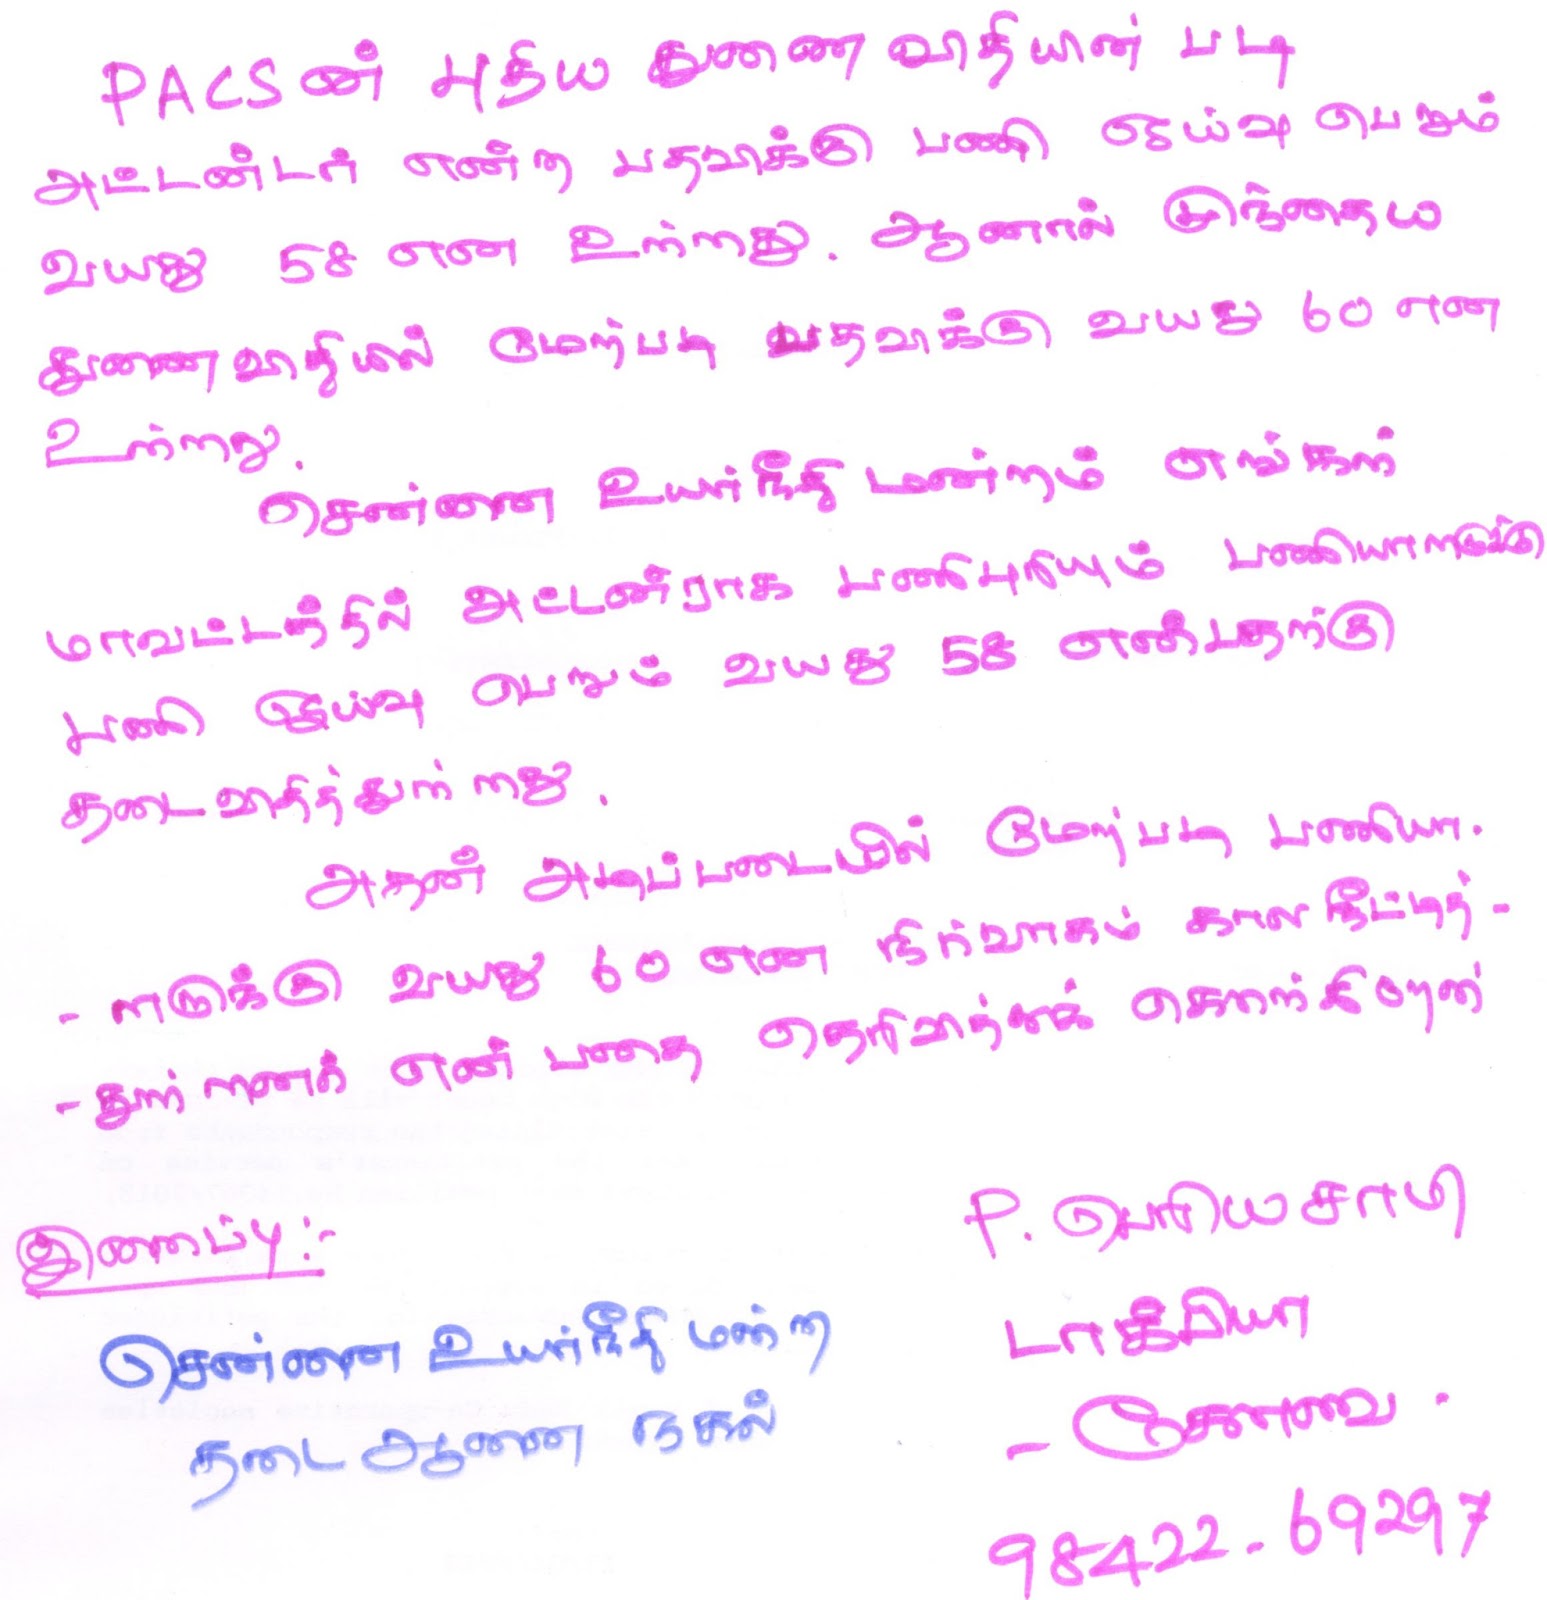 PACSன் புதிய துணை விதியின் படி
அட்டண்டர் என்ற பதவிக்கு பணி ஓய்வு பெறும்
வயது 58 என உள்ளது. ஆனால் முந்தைய
துணை விதியில் மேற்படி பதவிக்கு வயது 60 என
உள்ளது.
சென்னை உயர்நீதி மன்றம் எங்கள்
மாவட்டத்தில் அட்டன்ராக பணிபுரியும் பணியாளருக்கு
பணி ஓய்வு பெறும் வயது 58 என்பதற்கு
தடைவிதித்துள்ளது.
அதன் அடிப்படையில் மேற்படி பணியா.
- ளருக்கு வயது 60 என நிர்வாகம் காலநீட்டித் -
- துள்ளனர் என் பதை தெரிவித்துக் கொள்கிறேன்
இணைப்பு :-
சென்னை உயர்நீதி மன்ற
தடை ஆணை நகல்
P. பெரியசாமி
டாக்பியா
- கோவை .
98422-69297